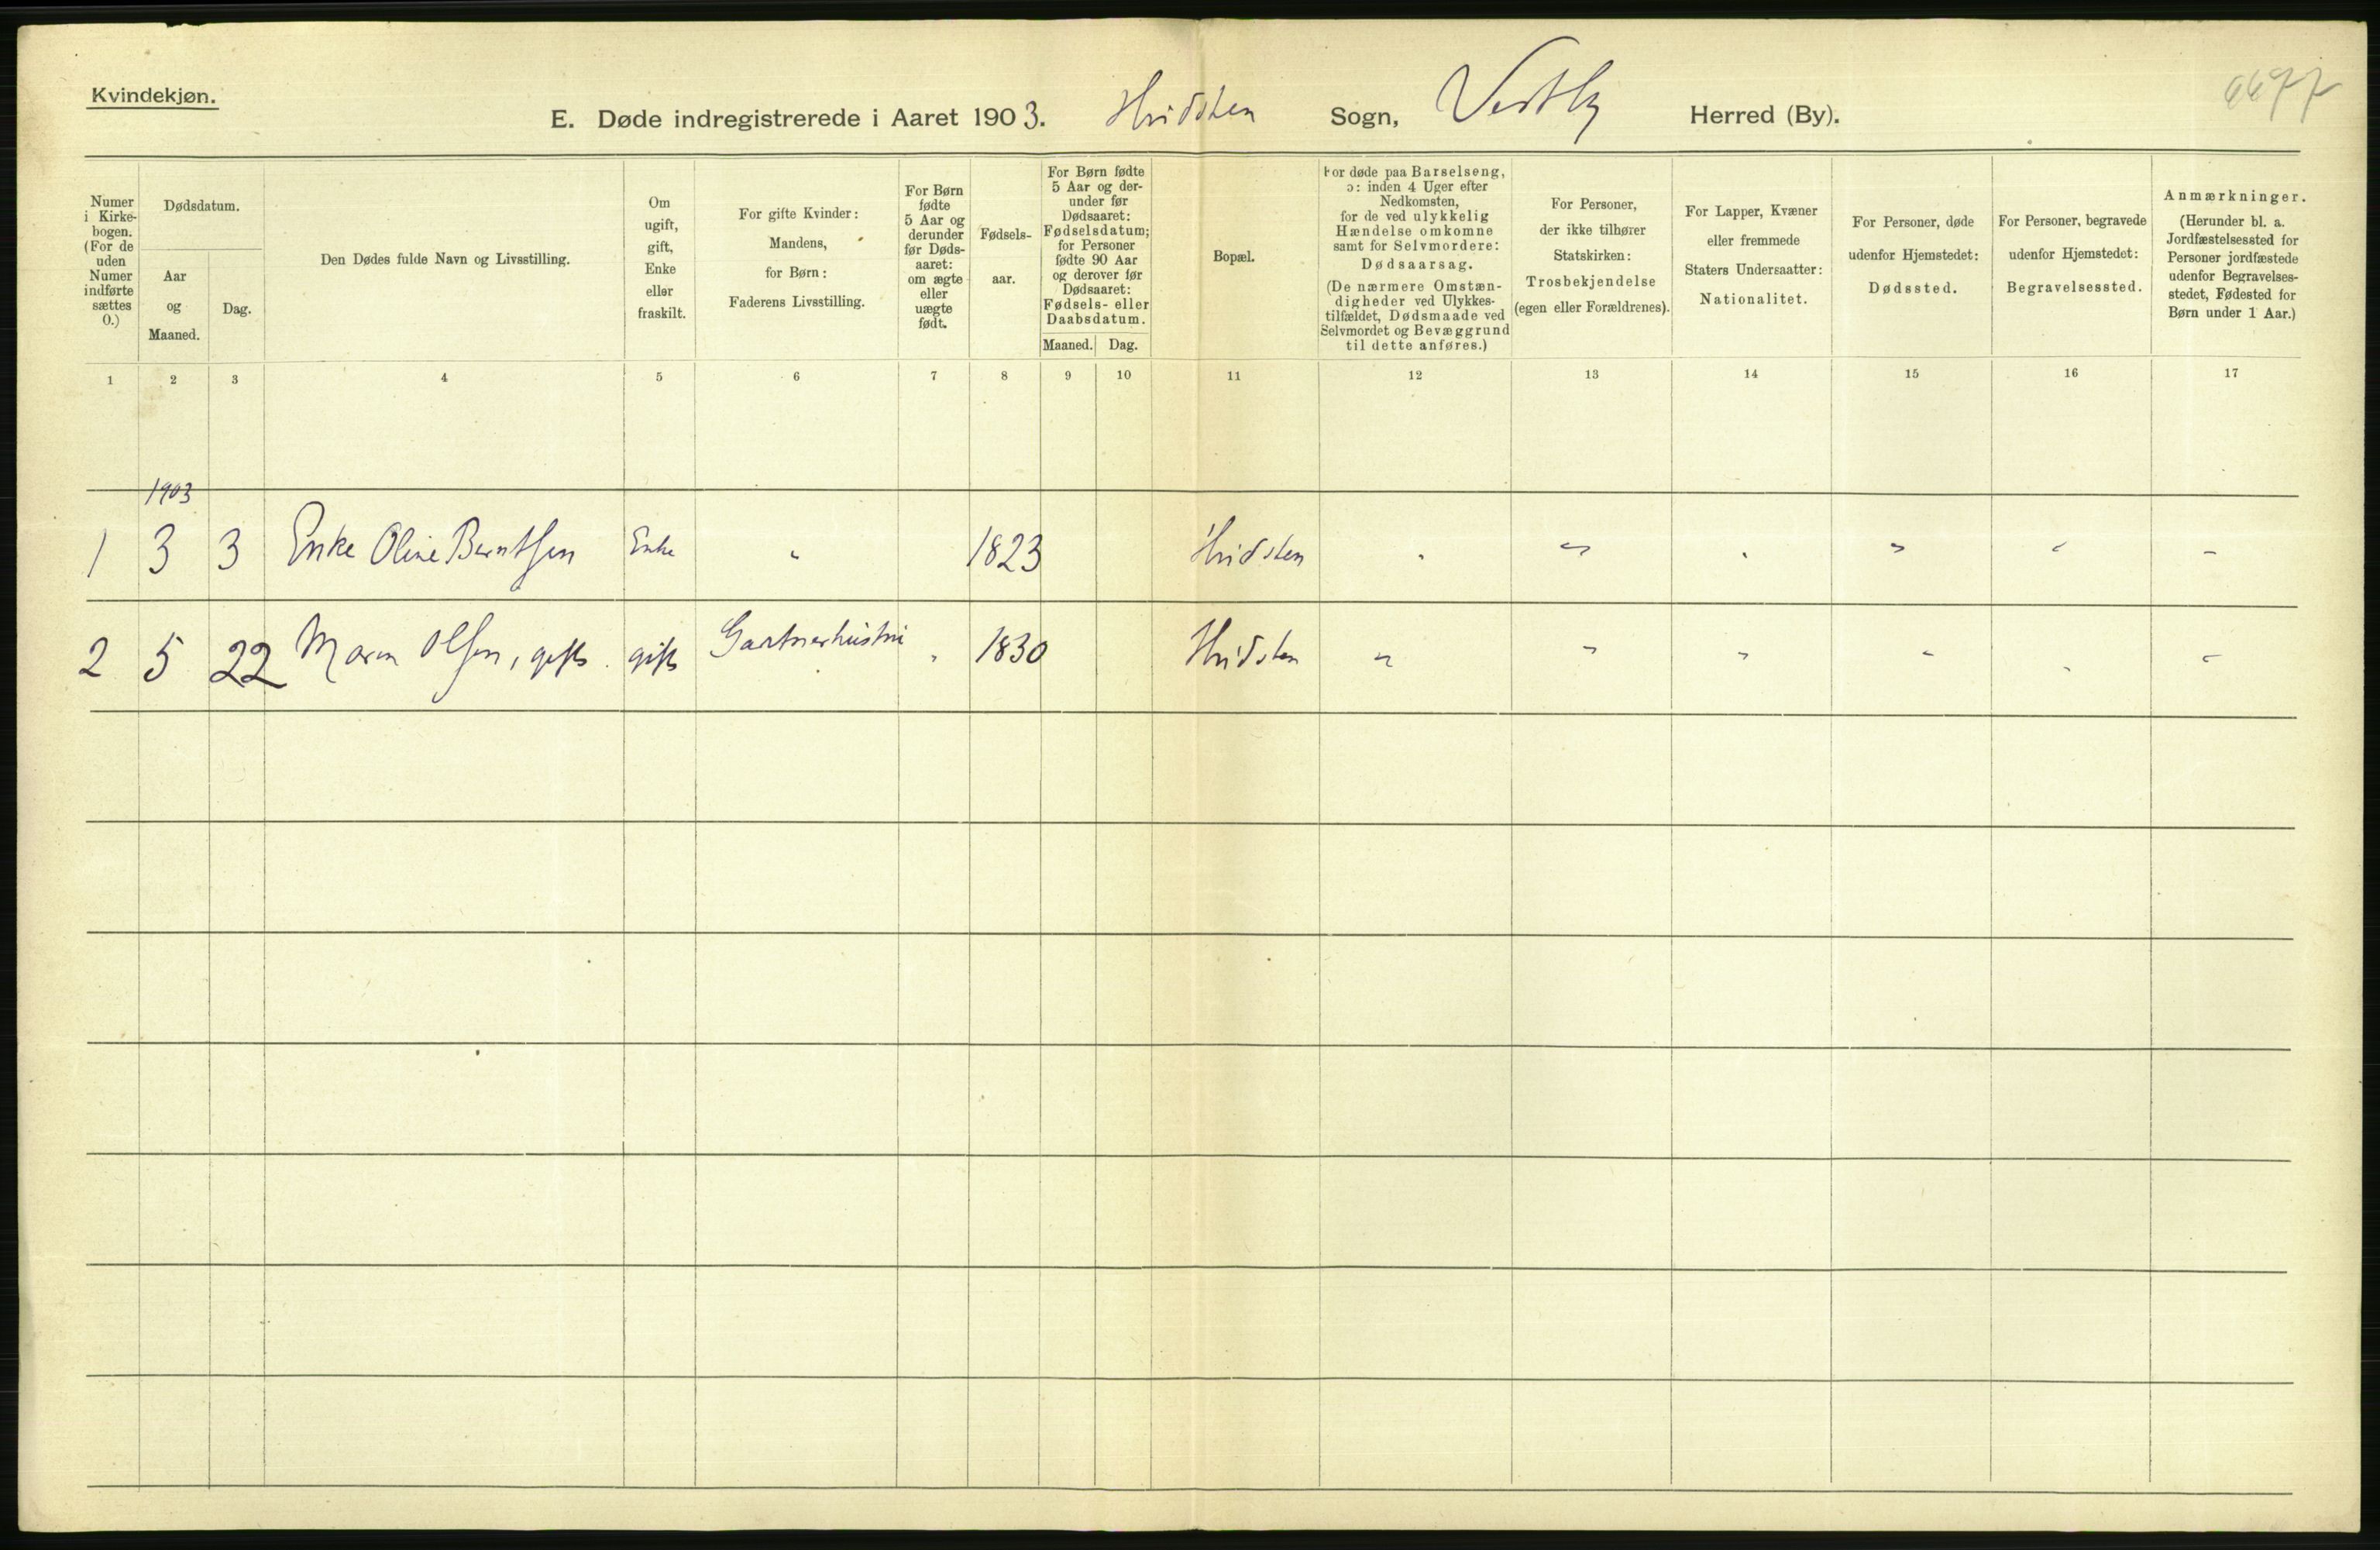 Kvindekjøn.
E. Døde indregistrerede i Aaret 1903. Hvidsten Sogn, Vestby Herred (By).
Numer i Kirke-bogen. (For de uden Numer indførte sættes 0.)
Dødsdatum.
Aar og Maaned.
Dag.
Den Dødes fulde Navn og Livsstilling.
Om ugift, gift, Enke eller fraskilt.
For gifte Kvinder: Mandens, for Børn: Faderens Livsstilling.
For Børn fødte 5 Aar og derunder før Døds-aaret: om ægte eller uægte født.
Fødsels-aar.
For Børn fødte 5 Aar og der-under før Dødsaaret: Fødselsdatum; for Personer fødte 90 Aar og derover før Dødsaaret: Fødsels- eller Daabsdatum.
Maaned. Dag.
Bopæl.
For døde paa Barselseng, ɔ: inden 4 Uger efter Nedkomsten, for de ved ulykkelig Hændelse omkomne samt for Selvmordere: Dødsaarsag. (De nærmere Omstæn-digheder ved Ulykkes-tilfældet, Dødsmaade ved Selvmordet og Bevæggrund til dette anføres.)
For Personer, der ikke tilhører Statskirken: Trosbekjendelse (egen eller Forældrenes).
For Lapper, Kvæner eller fremmede Staters Undersaatter: Nationalitet.
For Personer, døde udenfor Hjemstedet: Dødssted.
For Personer, begravede udenfor Hjemstedet: Begravelsessted.
Anmærkninger. (Herunder bl. a. Jordfæstelsessted for Personer jordfæstede udenfor Begravelses-stedet, Fødested for Børn under 1 Aar.)
1 2 3 4 5 6 7 8 9 10 11 12 13 14 15 16 17
1903
1 3 3 Enke Oline Berntsen Enke " 1823 Hvidsten " " " " " "
2 5 22 Maren Olsen, gift. gift Gartnerhustru " 1830 Hvidsten " " " " " "